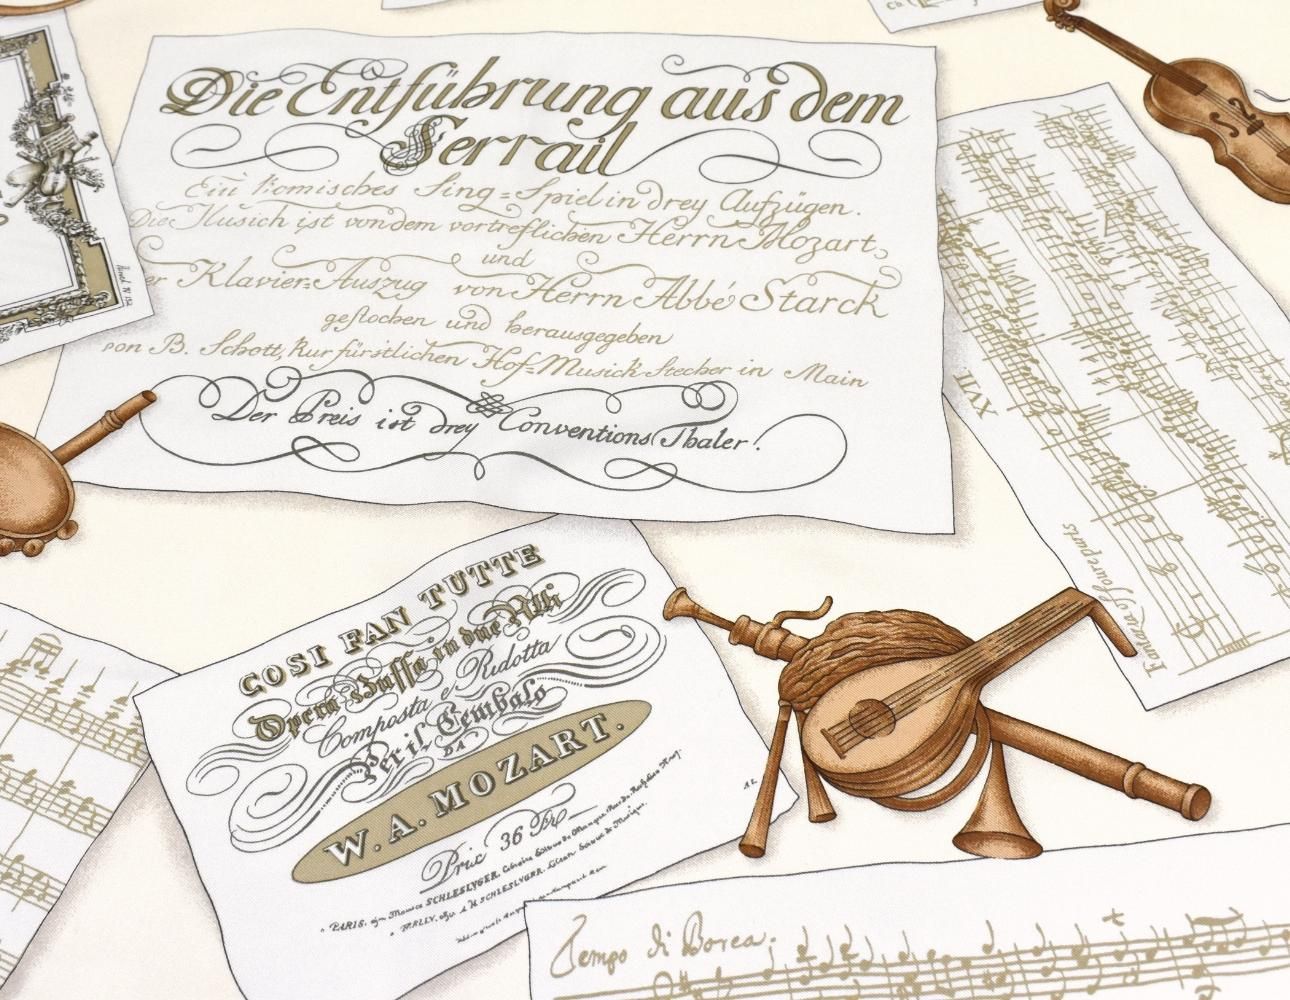 Die Entführung aus dem
Serrail
Ein Komisches Sing=Spiel in drey Aufzügen.
Die Musich ist von dem vortreflichen Herrn Mozart,
und
er Klavier=Auszug von Herrn Abbé Starck
gestochen und herausgegeben
von B. Schott, Kurfürstlichen Hof=Musick-stecher in Main
Der Preis ist drey Conventions Thaler!
XVII
Fantazy
COSI FAN TUTTE
Opera Buffa in due Atti
Composta e Ridotta
Per il Cembalo
DA
W. A. MOZART.
Prix 36 Fr
PARIS, Maurice SCHLESLYGER,
SCHLESLYGER,
Tempo di Borea;